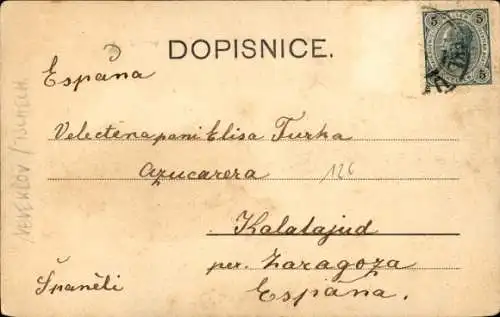 DOPISNICE.
5 5
España
Velectena pani Elisa Turka
Azucarera
126
Kalatajud
per. Zaragoza
Španěli
España.